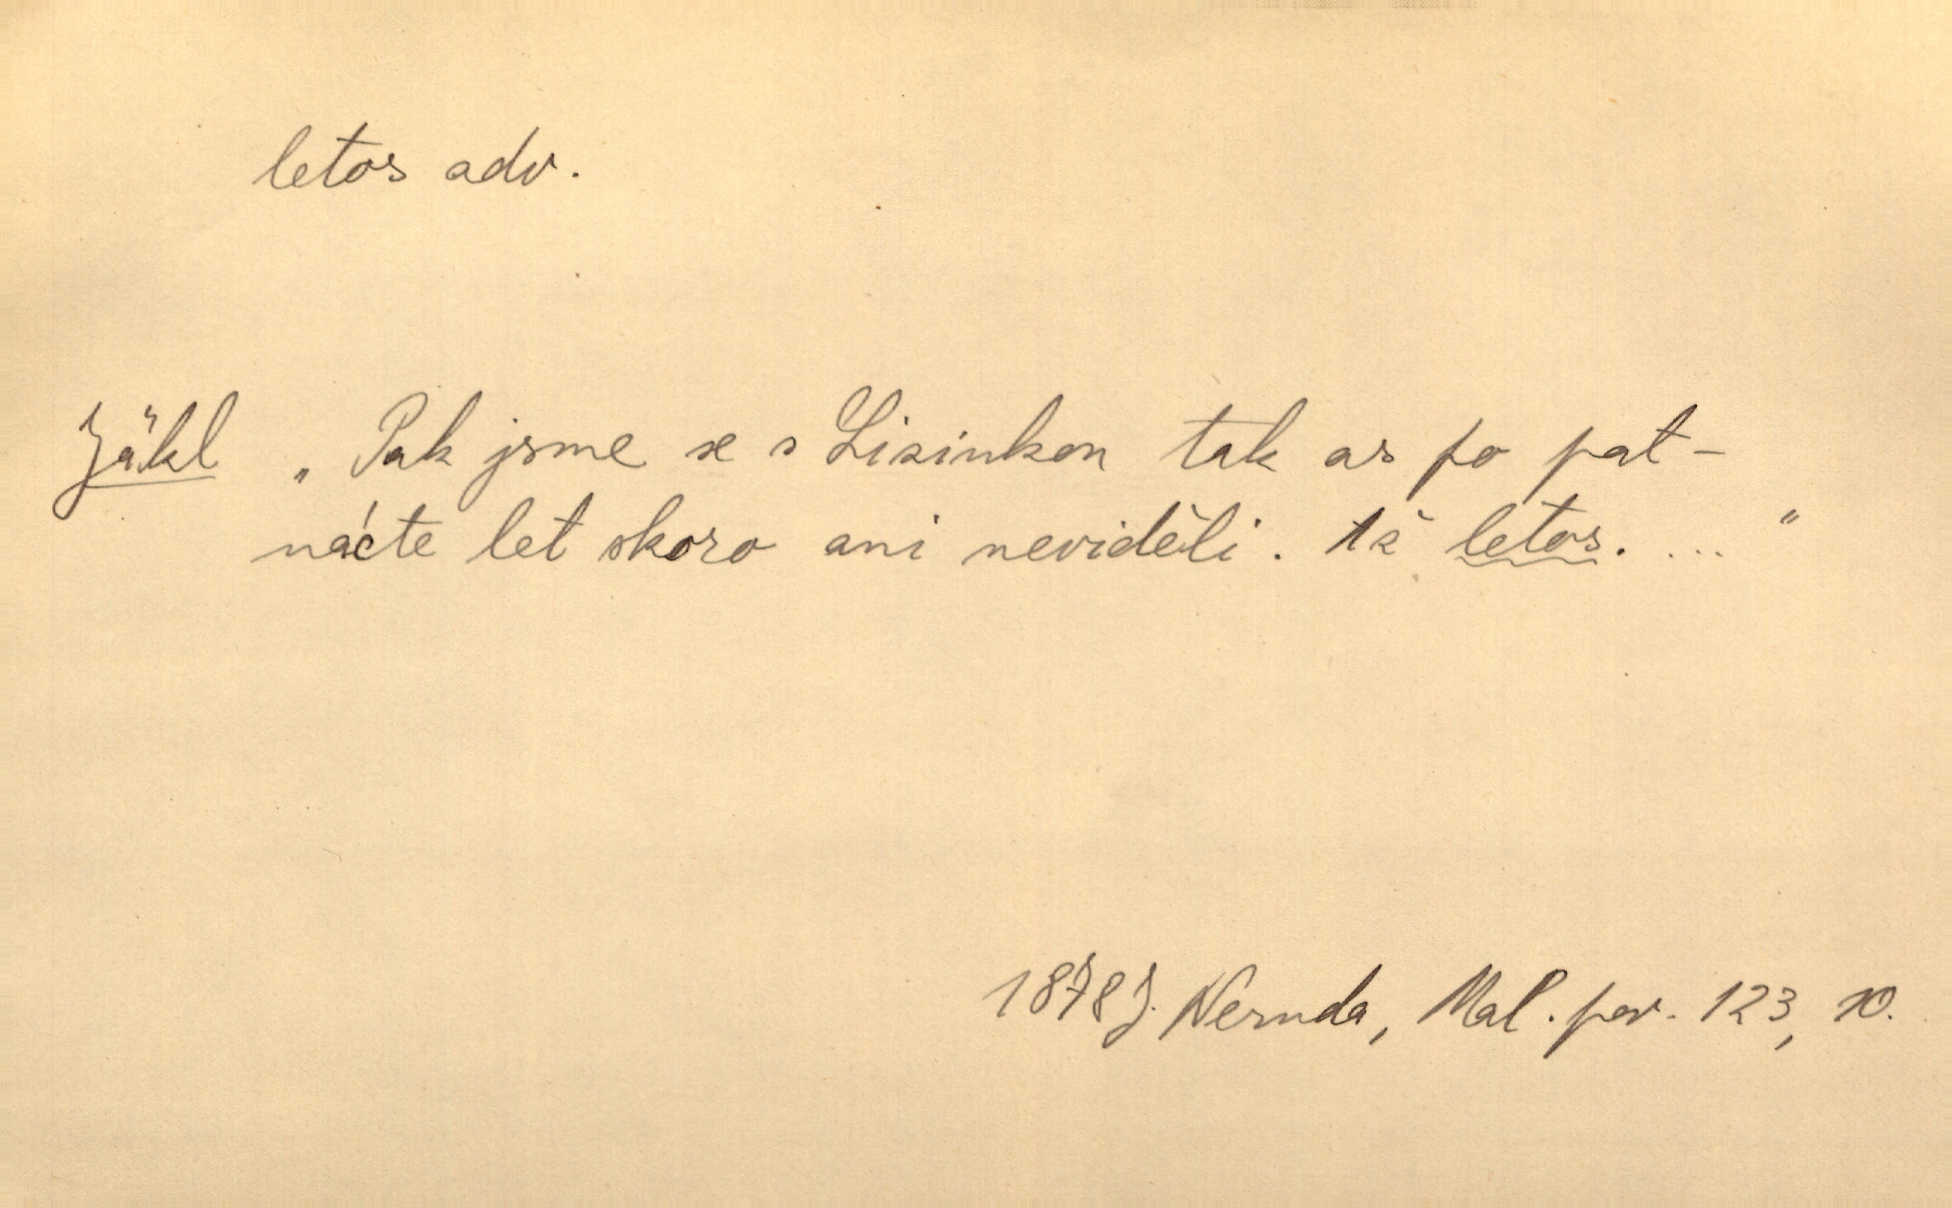 letos adv.
Jäkl „Pak jsme se s Lizinkou tak as po pat-
nácte let skoro ani neviděli. Až letos. ..."
1878 J. Neruda, Mal. pov. 123, 10.